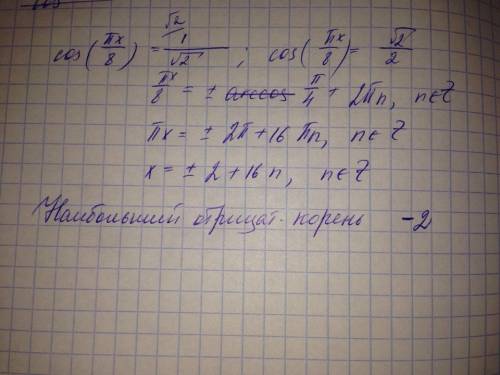 cos(πx/8) = √2/ 1/√2 ; cos(πx/8) = √2/2
πx/8 = ± arccos π/4 + 2πn, n∈Z
πx = ± 2π + 16πn, n∈Z
x = ± 2 + 16n, n∈Z
Наибольший отрицат. корень -2